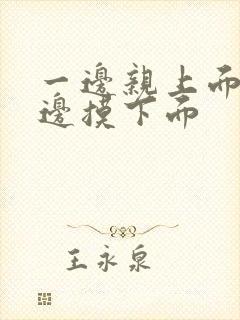 一邊親上面
邊摸下面
王永泉